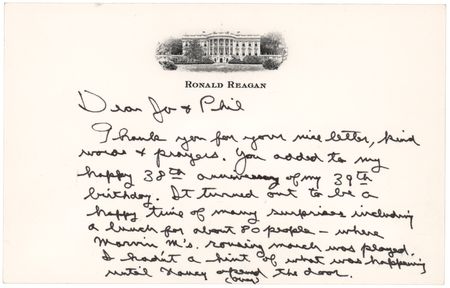 RONALD REAGAN
Dear Jo & Phil
Thank you for your nice letter, kind
words & prayers. You added to my
happy 38th anniversary of my 39th
birthday. It turned out to be a
happy time of many surprises including
a lunch for about 80 people – where
Marvin M's. rousing march was played.
I hadn't a hint of what was happening
until Nancy opened the door.